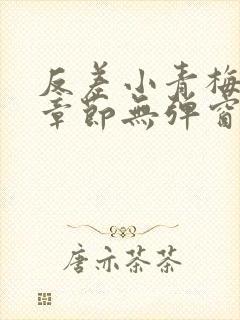 反差小青梅
章節無彈窗
唐亦茶茶